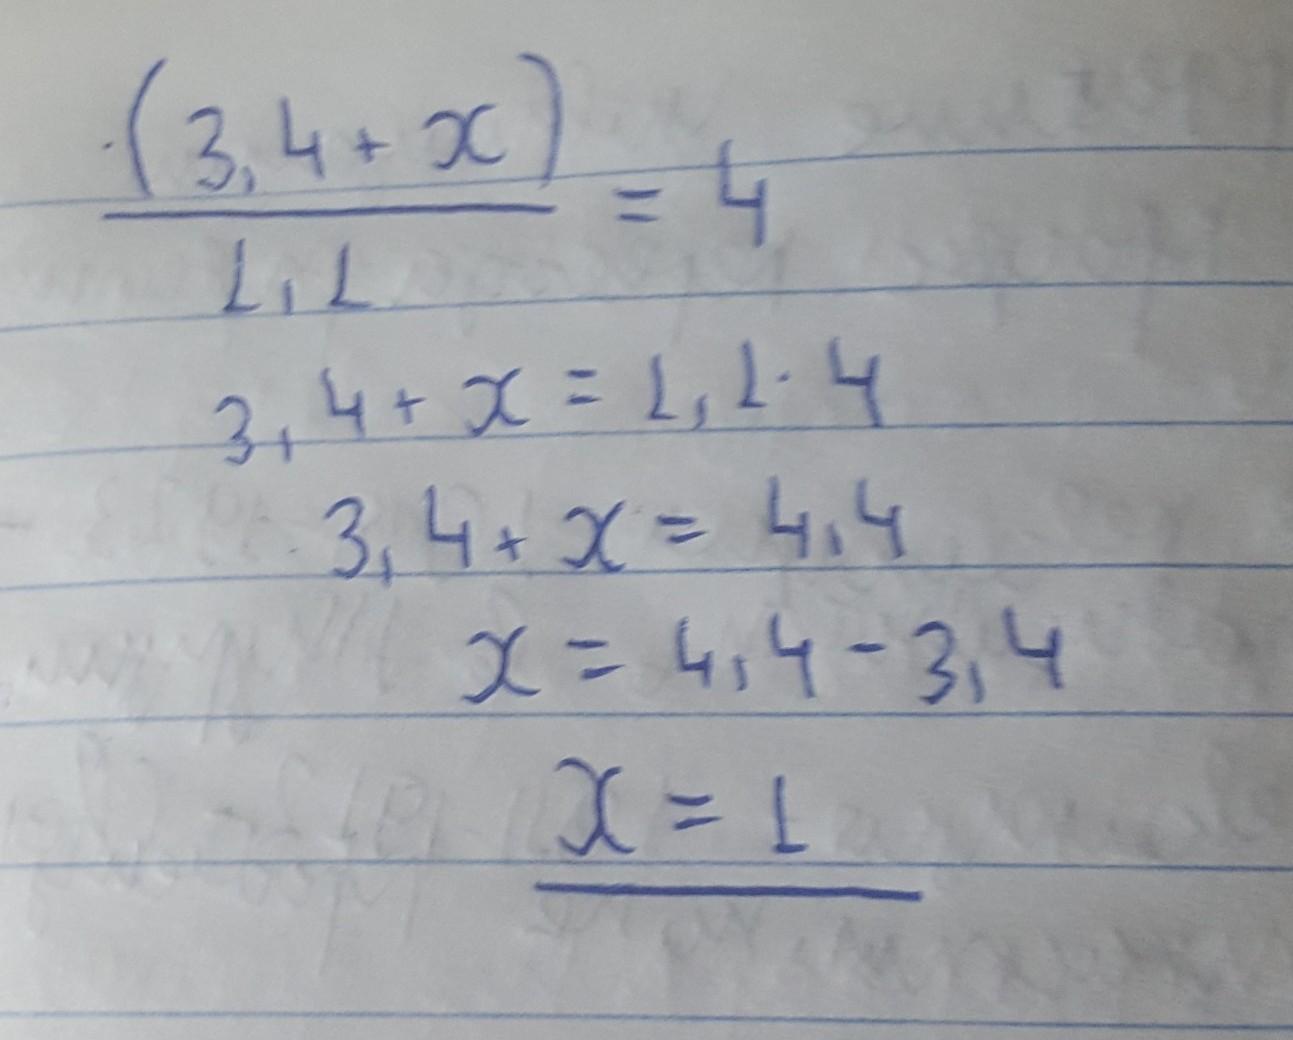 (3,4 + x)
1,1
= 4
3,4 + x = 1,1 · 4
3,4 + x = 4,4
x = 4,4 - 3,4
x = 1